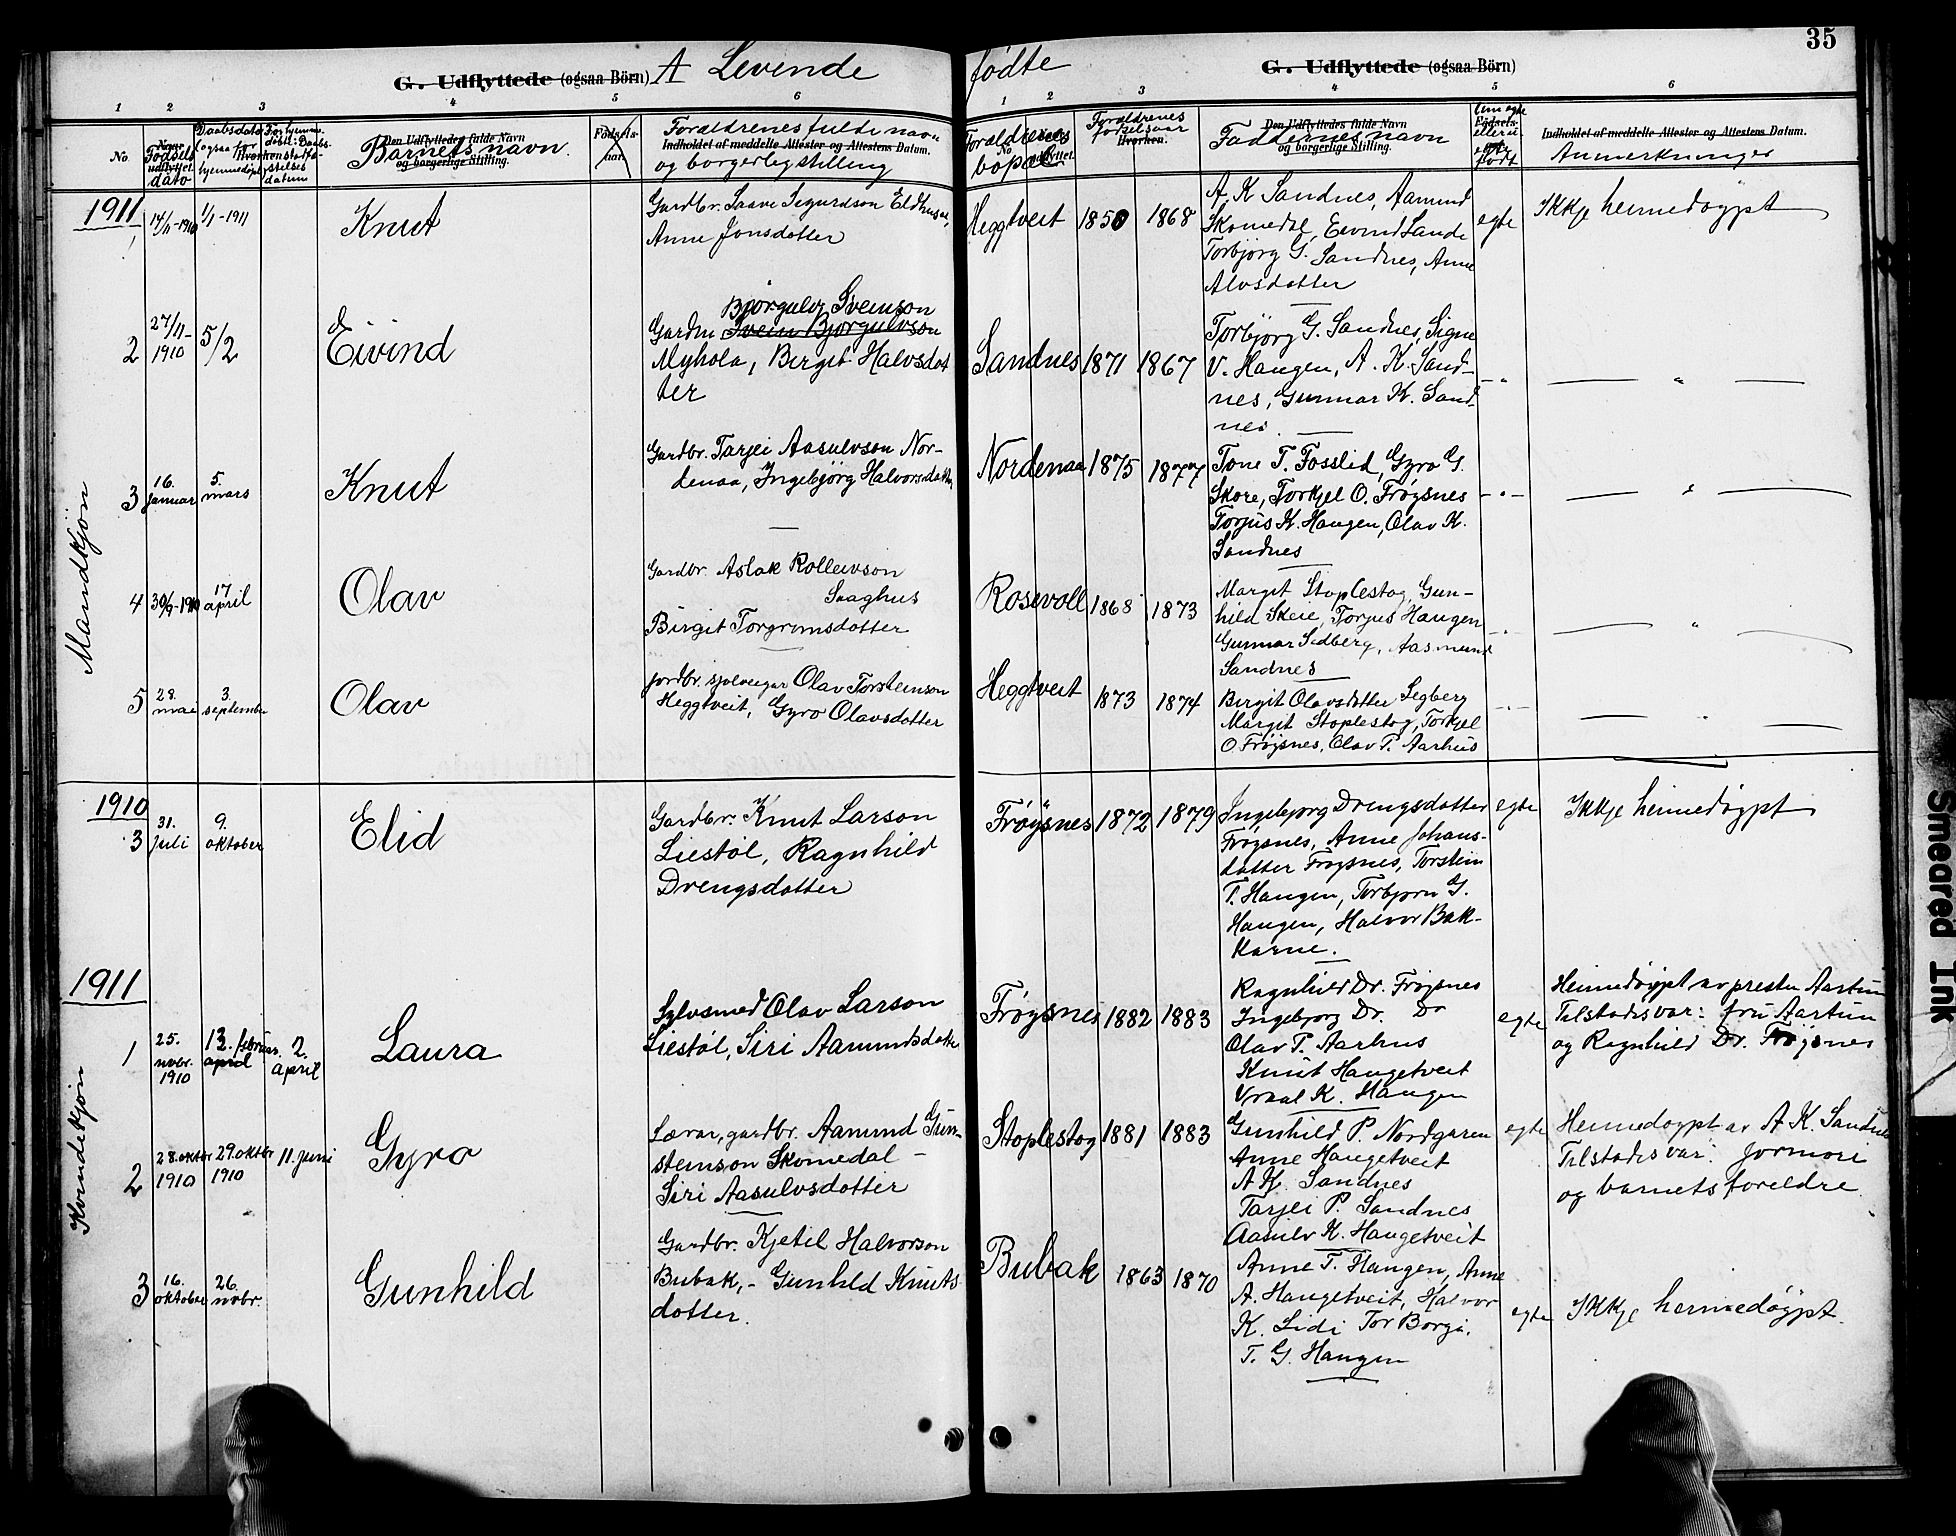 35
G. Udflyttede (ogsaa Börn) A Levende fødte G. Udflyttede (ogsaa Börn)
1 2 3 4 5 6 1 2 3 4 5 6
No.
Fødsels dato
Daabsdato (ogsaa for hjemmedøpt)
For hjemmedøpt: Daabs stadfæstelses datum
Den Udflyttedes fulde Navn og borgerlige Stilling.
Barnets navn
Fødsels-aar.
Forældrenes fulde navn
Indholdet af meddelte Attester og Attestens Datum.
og borgerlig stilling
Forældrenes bopæl
Forældrenes fødselsaar
Hvorhen.
Den Udflyttedes fulde Navn og borgerlige Stilling.
Faddernes navn
Om egte eller uegte født
Indholdet af meddelte Attester og Attestens Datum.
Anmerkninger
Mandkjøn
1911
1 14/11-1910 1/1-1911 Knut
Gardbr. Saave Sigurdson Eldhuset,
Anne Jonsdotter
Heggtveit 1850 1868
A. K. Sandnes, Aamund
Skomedal, Eivind Sande
Torbjörg G. Sandnes, Anne
Alvsdotter
egte Ikkje heimedøypt
2 27/11-1910 5/2 Eivind
Bjørgulv Sveinson
Gardm Svein Bjørgulvson
Myhola, Birgit Halvsdot
ter
Sandnes 1871 1867
Torbjörg G. Sandnes, Signe
V. Haugen, A. K. Sand-
nes, Gunnar K. Sand-
nes.
- " - — " —
3 16. januar 5. mars Knut
Gardbr. Tarjei Aasulvson Nor-
denaa, Ingebjörg Halvorsdotter
Nordenaa 1875 1877
Tone T. Fosslid, Gyro G.
Skore, Torkjel O. Frøysnes
Torjus K. Haugen, Olav K.
Sandnes
- " - — " —
4 30/9-1910 17 april Olav
Gardbr. Aslak Rolleivson
Saaghus
Birgit Torgrimsdotter
Rosevoll 1868 1873
Margit Stoplestog, Gun-
hild Skeie, Torjus Haugen
Gunnar Sedberg, Aasmund
Sandnes
- " - — " —
5 28. mai 3. september Olav
jordbr. sjølveigar Olav Torsteinson
Heggtveit, Gyro Olavsdotter
Heggtveit 1873 1874
Birgit Olavsdotter Segberg
Margit Stoplestog, Torkjel
O. Frøysnes, Olav T. Aarhus
- " - — " —
Kvindekjön
1910
3 31. juli 9. oktober Elid
Gardbr. Knut Larson
Liestøl, Ragnhild
Drengsdotter
Frøysnes 1872 1879
Ingebjorg Drengsdotter
Frøysnes, Anne Johans-
dotter Frøysnes, Torstein
T. Haugen, Torbjorn G.
Haugen, Halvor Bak-
karne.
egte Ikkje heimedøypt
1911
1 25. novbr. 1910 12. februar. april 2. april Laura
Sylvsmed Olav Larson
Liestøl, Siri Aamundsdotter
Frøysnes 1882 1883
Ragnhild Dr. Frøysnes
Ingebjorg Dr. Do
Olav T. Aarhus
Knut Haugetveit
Vraal K. Haugen
egte
Heimedøypt av presten Aartun
Tilstades var: fru Aartun
og Ragnhild Dr. Frøysnes
2 28. oktbr 1910 29. oktbr 1910 11. juni Gyro
Lærar, gardbr. Aamund Gun-
steinson Skomedal -
Siri Aasulvsdotter
Stoplestog 1881 1883
Gunhild P. Nordgaren
Anne Haugetveit
A K. Sandnes
Tarjei P. Sandnes
Aasulv K. Haugetveit
egte
Heimedøypt av A K. Sandnes
Tilstades var: jormore
og barnets foreldre
3 16. oktober 26. novbr. Gunhild
Gardbr. Kjetil Halvorson
Bubak, - Gunhild Knuts
dotter.
Bubak 1863 1870
Anne T. Haugen, Anne
A. Haugetveit, Halvor
K. Lidi Tor Borgi.
T. G. Haugen
egte Ikkje heimedøypt.
Smeared Ink